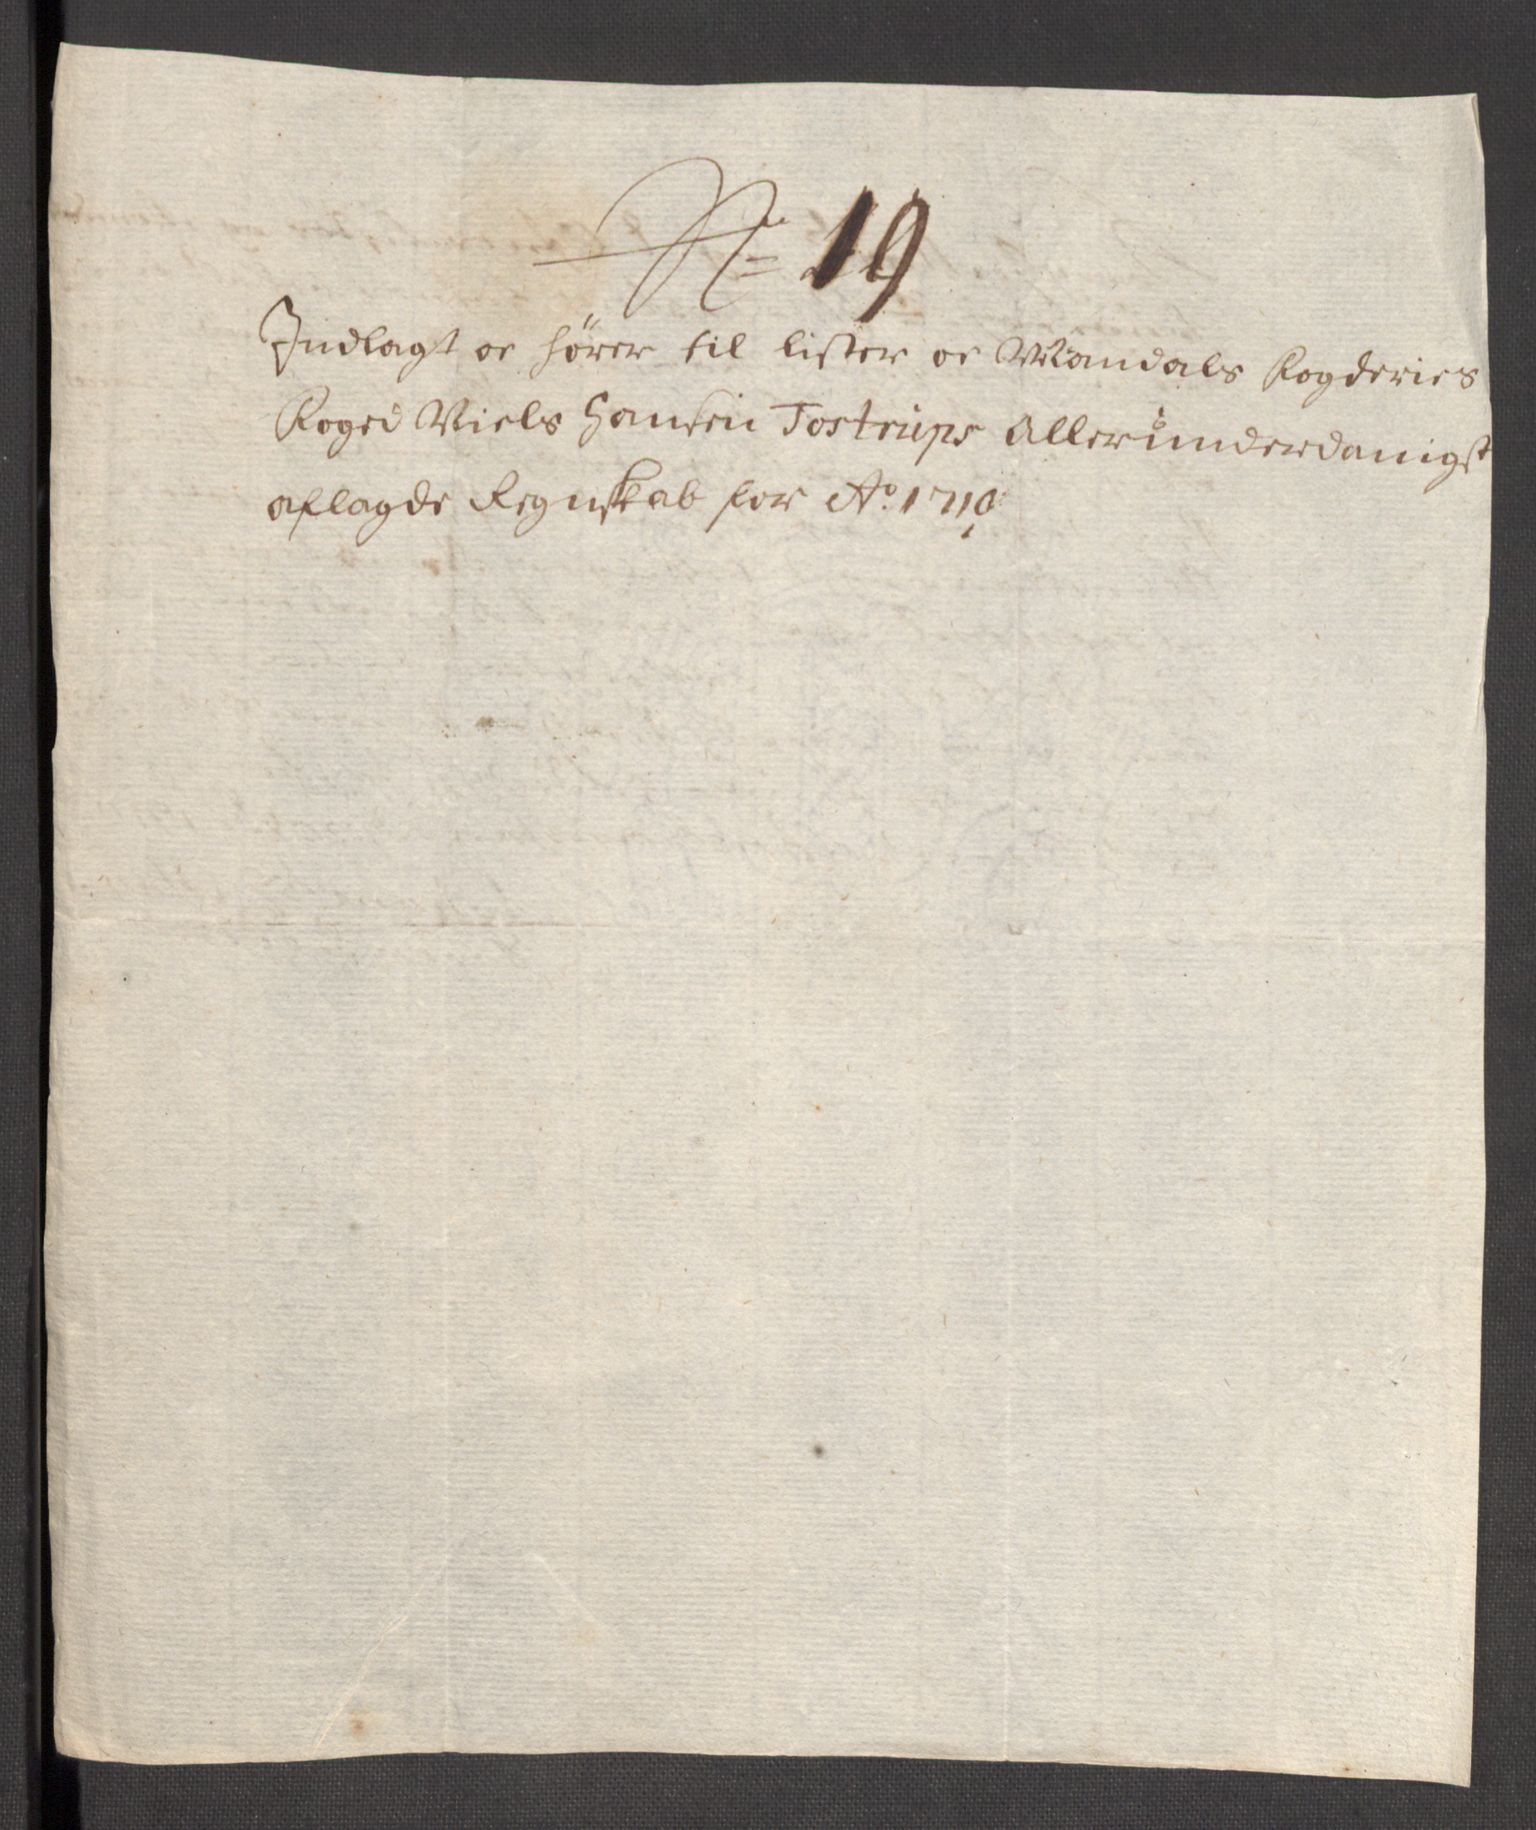 No 19
Indlagt oc hører til Lister oc Mandals Fogderies
Foged Niels Hansen Tostrups Allerunderdanigst
aflagde Regnskab for Ao. 1710